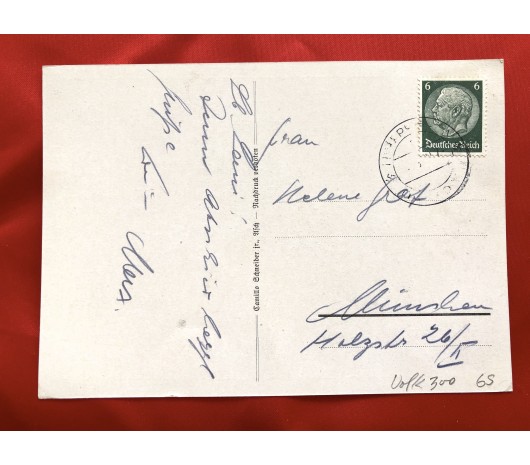 Lb. Leni!
Zum Abschied
herzl.
Grüße
Dein
Max.
Camillo Schneider jr., Asch — Nachdruck verboten
6 6
Deutsches Reich
Frau
Helene Graf
München
Holzstr 26/II
Volk 300 6S